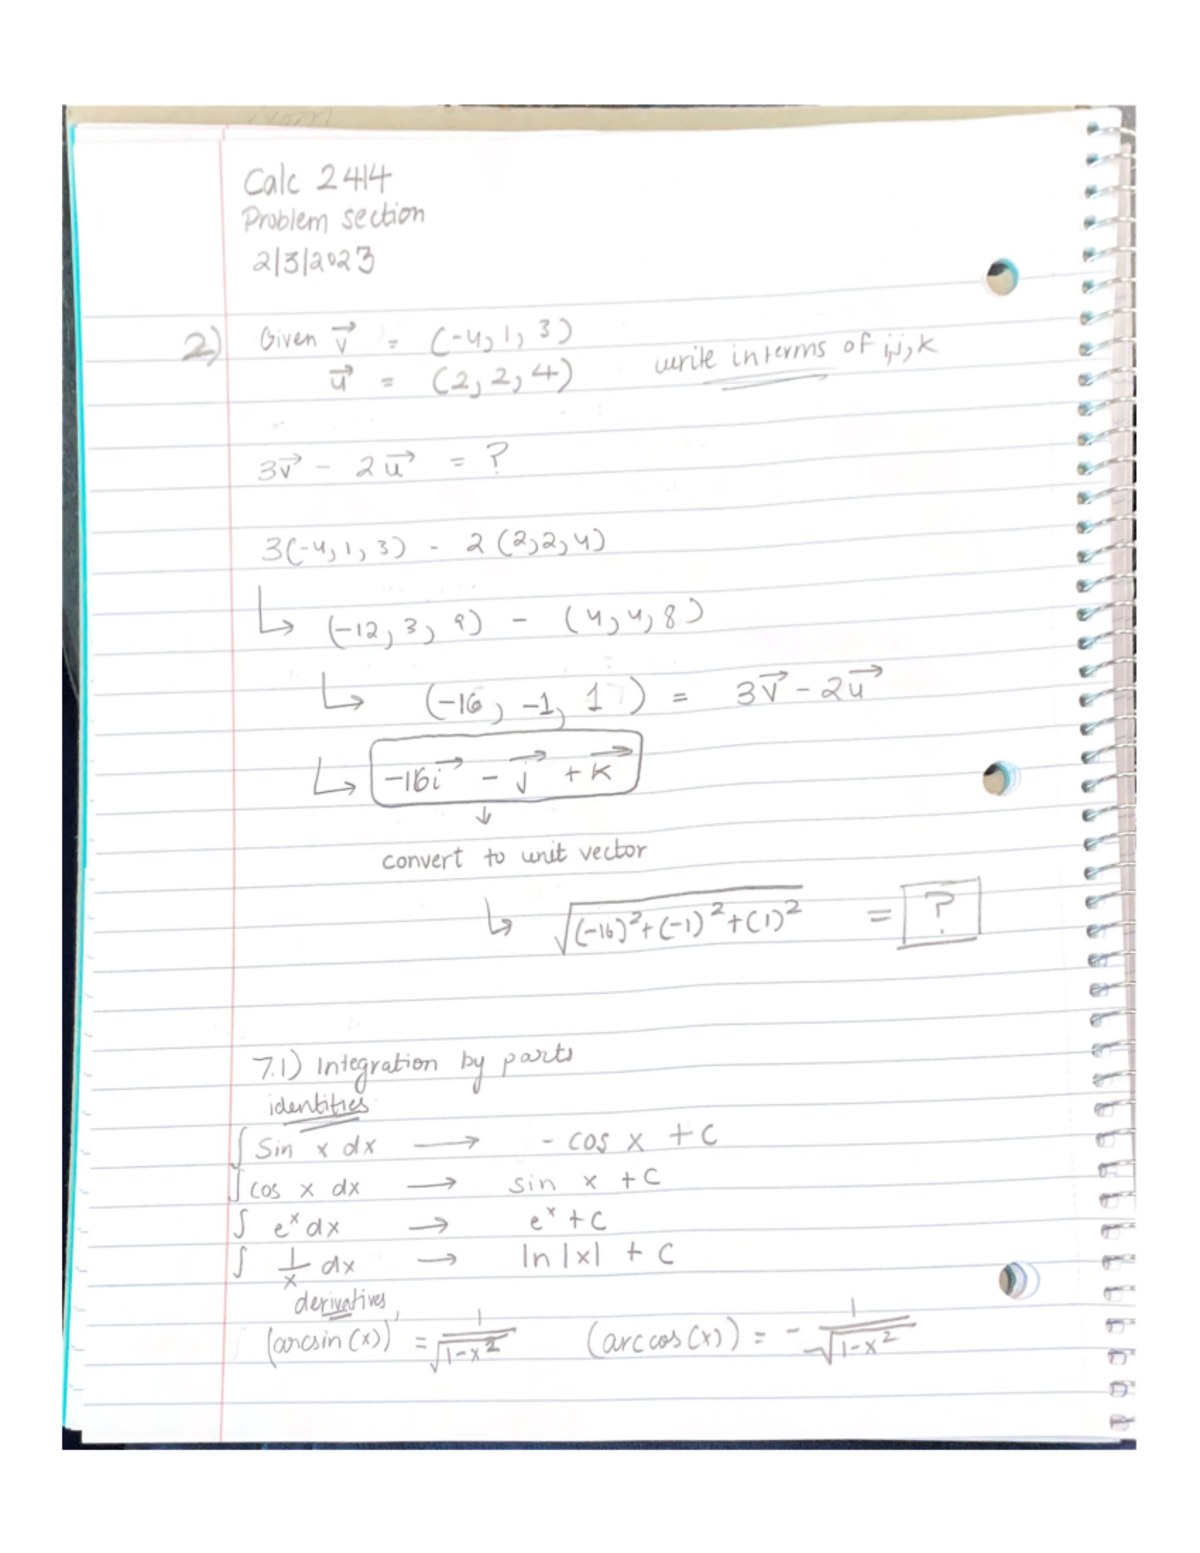 Calc 2414
Problem section
2/3/2023
2) Given v⃗ = (-4, 1, 3)
u⃗ = (2, 2, 4) write in terms of i, j, k
3v⃗ - 2u⃗ = ?
3(-4, 1, 3) - 2(2, 2, 4)
↳ (-12, 3, 9) - (4, 4, 8)
↳ (-16, -1, 1) = 3v⃗ - 2u⃗
↳ -16i⃗ - j⃗ + k⃗
↓
convert to unit vector
↳ √((-16)² + (-1)² + (1)²) = ?
7.1) Integration by parts
identities
∫ Sin x dx → - cos x + C
∫ cos x dx → sin x + C
∫ eˣ dx → eˣ + C
∫ 1/x dx → ln |x| + C
derivatives
(arcsin(x))' = 1/√(1-x²) (arccos(x)) = - 1/√(1-x²)